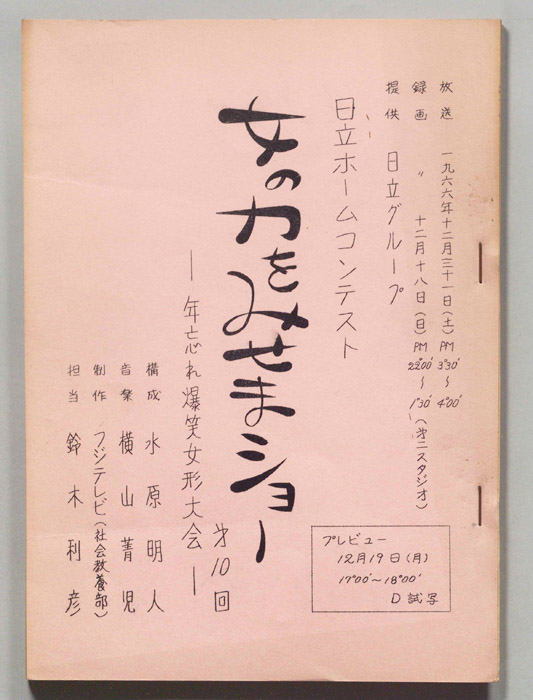 放送 一九六六年十二月三十一日(土)PM 3°30′~4°00′
録画 〃 十二月十八日(日)PM 22°00′~1°30′(第二スタジオ)
提供 日立グループ
日立ホームコンテスト
女の力をみせまショー
第10回
―年忘れ爆笑女形大会―
構成 水原明人
音楽 横山菁児
制作 フジテレビ(社会教養部)
担当 鈴木利彦
プレビュー
12月19日(月)
17°00′~18°00′
D試写